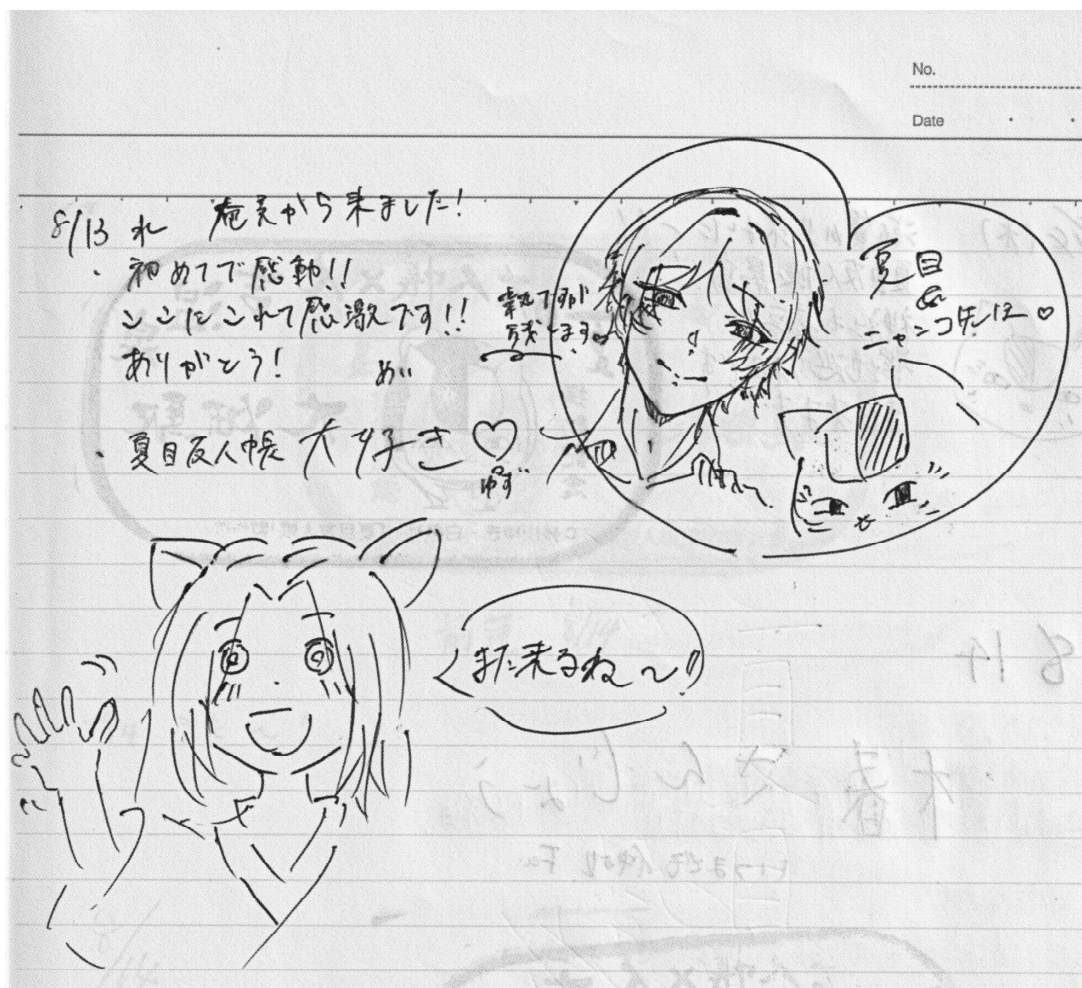 No.
Date
8/13 水 奄美から来ました!
・初めてで感動!!
ここにこれて感激です!!
ありがとう! めい
・夏目友人帳 大好き♡
ゆず
ですが
残します
夏目
&
ニャンコ先生♡
また来るね〜!!